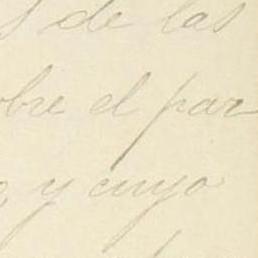 s de las
obre el par
o, y cuyo